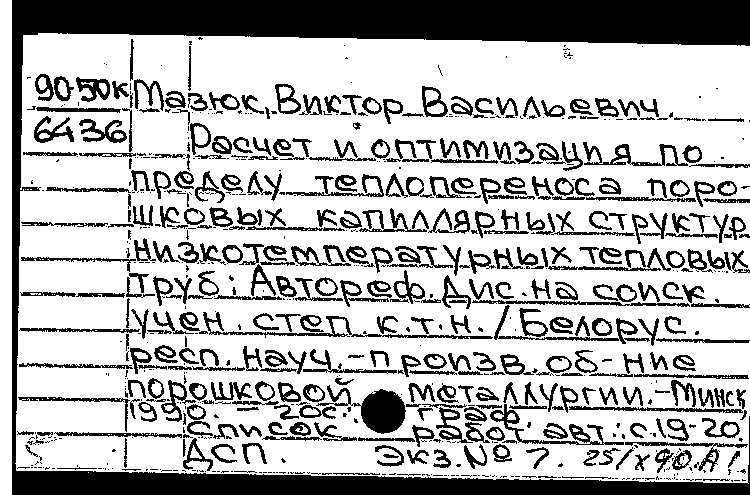 90-50к Мазюк, Виктор Васильевич.
6436 Расчет и оптимизация по
пределу теплопереноса поро-
шковых капиллярных структур
низкотемпературных тепловых
труб: Автореф. Дис. на соиск.
учен. степ. к.т.н. / Белорус.
респ. науч.-произв. об-ние
порошковой металлургии.-Минск,
1990. - 20с.: граф.
Список работ. авт.: с.19-20.
ДСП. Экз.№ 7. 25/X90.А